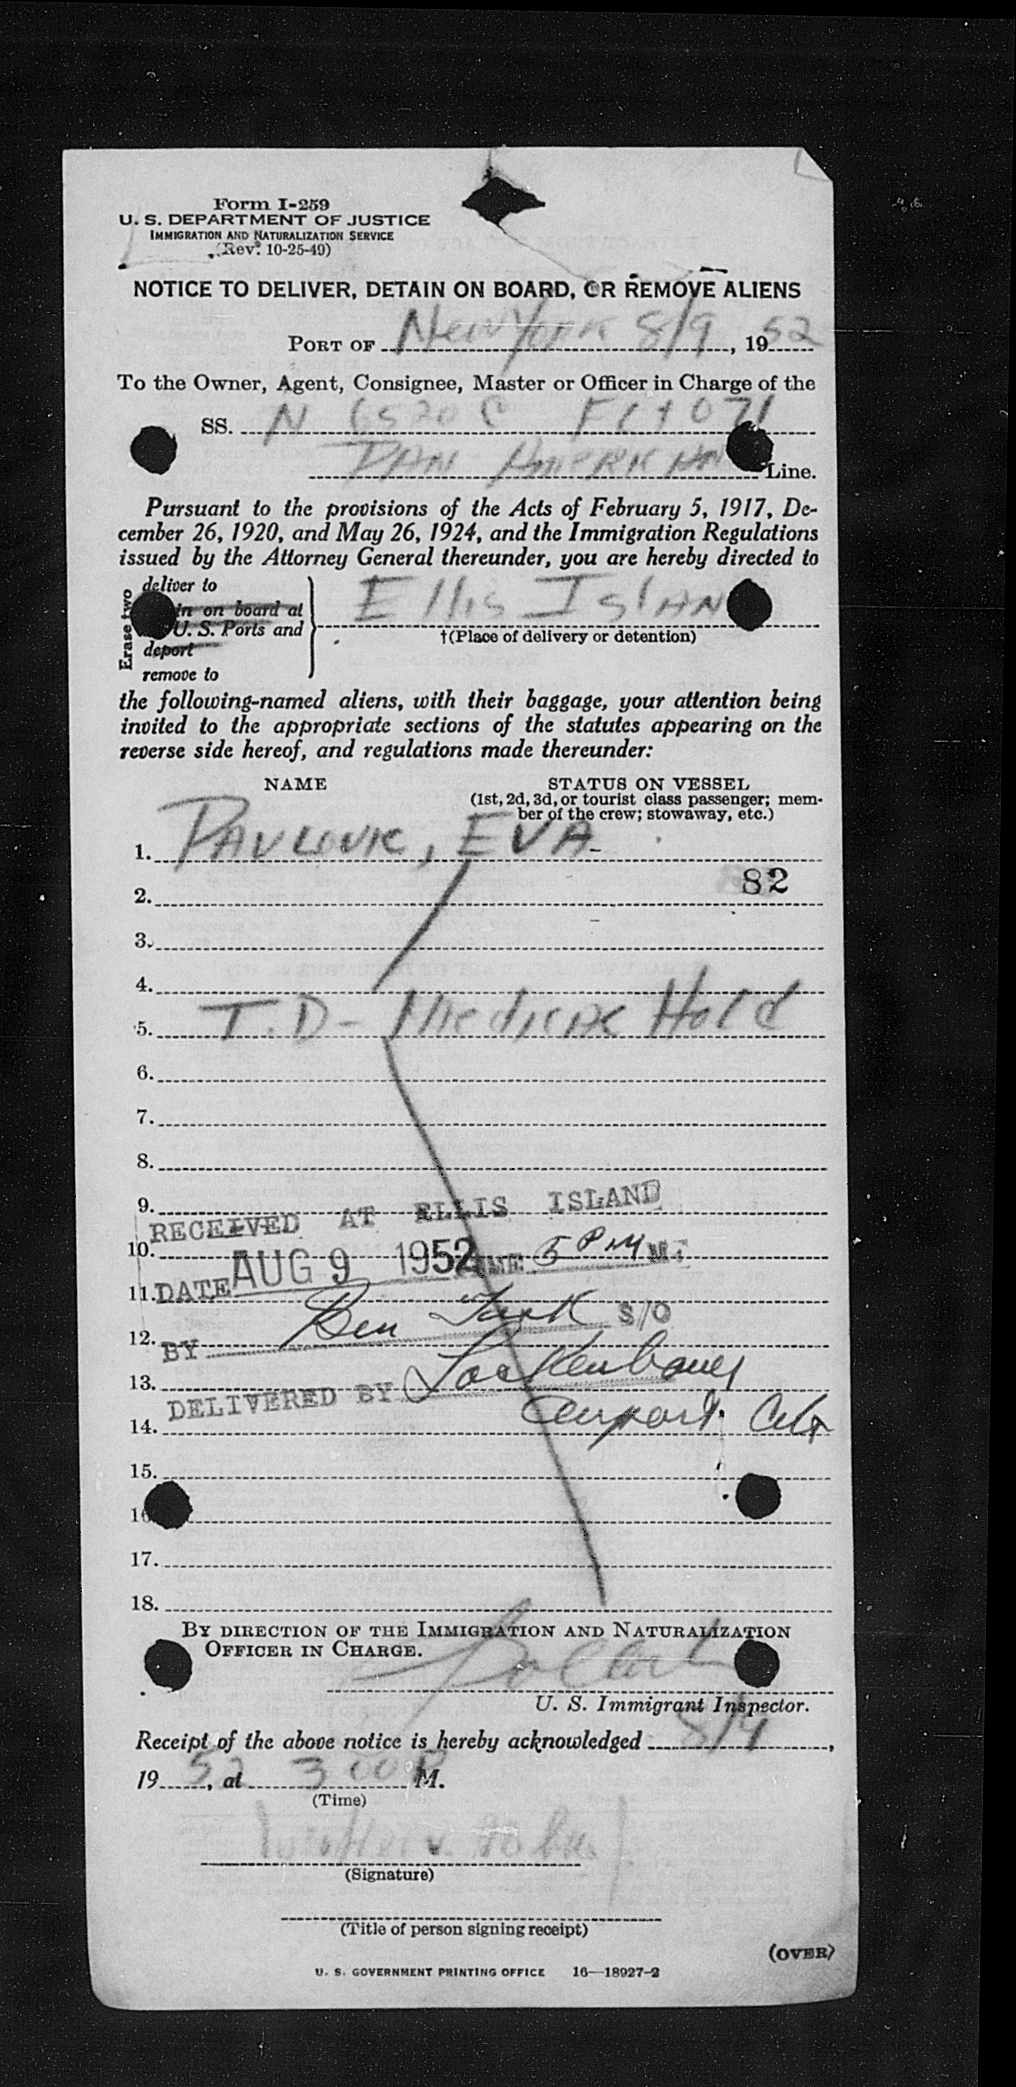 Form I-259
U. S. DEPARTMENT OF JUSTICE
IMMIGRATION AND NATURALIZATION SERVICE
(Rev. 10-25-49)
NOTICE TO DELIVER, DETAIN ON BOARD, OR REMOVE ALIENS
PORT OF New York 8/9, 1952
To the Owner, Agent, Consignee, Master or Officer in Charge of the
SS. N 6520 C FLT 071
PAN AMERICAN Line.
Pursuant to the provisions of the Acts of February 5, 1917, De-
cember 26, 1920, and May 26, 1924, and the Immigration Regulations
issued by the Attorney General thereunder, you are hereby directed to
Erase two
deliver to
in on board at
U. S. Ports and
deport
remove to
Ellis Islan
†(Place of delivery or detention)
the following-named aliens, with their baggage, your attention being
invited to the appropriate sections of the statutes appearing on the
reverse side hereof, and regulations made thereunder:
NAME STATUS ON VESSEL
(1st, 2d, 3d, or tourist class passenger; mem-
ber of the crew; stowaway, etc.)
1. PAVLOVIC, EVA
82
2.
3.
4.
5. T.D - Medical Hold
6.
7.
8.
9.
RECEIVED AT ELLIS ISLAND
10.
DATE AUG 9 1952 TIME 5 PM M.
11.
12. BY Ben S/O
13. DELIVERED BY
14. Airport
15.
16
17.
18.
BY DIRECTION OF THE IMMIGRATION AND NATURALIZATION
OFFICER IN CHARGE.
U. S. Immigrant Inspector.
Receipt of the above notice is hereby acknowledged 8/9,
1952, at 3 00 P M.
(Time)
(Signature)
(Title of person signing receipt)
(OVER)
U. S. GOVERNMENT PRINTING OFFICE 16—18927-2